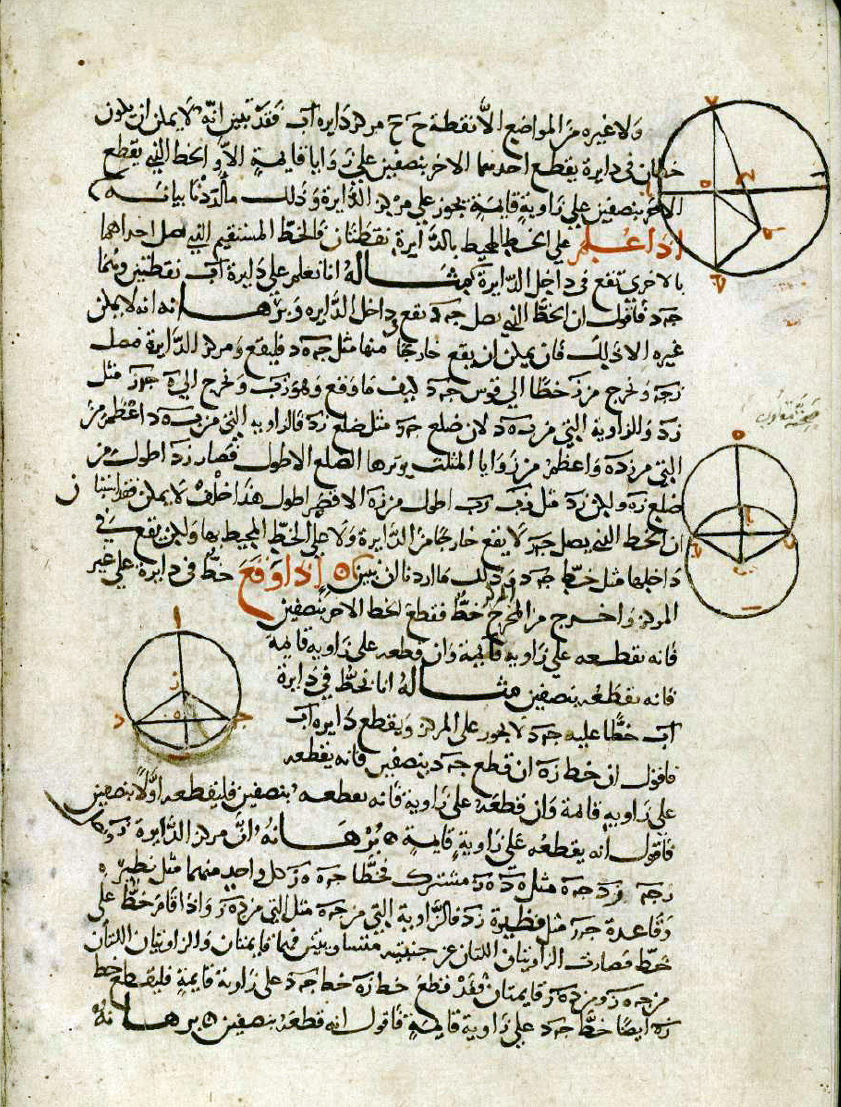 ولا غيره من المواضع الا نقطة ح ح مركز دايرة آب فقد تبين انه لا يمكن ان يكون
خطان في دايرة يقطع احدهما الاخر بنصفين على زوايا قايمة الا والخط الذي يقطع
الاخر بنصفين على زاوية قايمة يجوز على مركز الدايرة وذلك ما اردنا بيانه
اذا علم على الخط المحيط بالدايرة نقطتان فالخط المستقيم الذي يصل احداهما
بالاخرى يقع في داخل الدايرة مثاله انا نعلم على دايرة آب نقطتين وهما
جـ د فاقول ان الخط الذي يصل جـ د يقع داخل الدايره وبرهانه انه لا يمكن
غيره الا ذلك فان يمكن ان يقع خارجا منها مثل جـ ه د فليقع ومركز الدايرة فصل
زجـ ونخرج من ز خطا الى قوس جـ د كيف ما وقع وهو زب ونخرج الى ه جـ ز مثل
زد والزاوية التي من د لان ضلع جـ ز مثل ضلع زد فالزاويه التي من د اعظم من
التي من زده واعظم من زوايا المثلث يوترها الضلع الاطول فصار زد اطول من
ضلع زه ولكن زد مثل زب زب اطول من زه الاقصر اطول هذا خلف لا يمكن فقد استبان
ان الخط الذي يصل جـ د لا يقع خارجا من الدايرة ولا على الخط المحيط بها ولكن يقع في
داخلها مثل خط جـ د وذلك ما اردنا ان نبين ه اذا وقع خط في دايرة على غير
المركز واخرج من المركز خط فقطع الخط الاخر بنصفين
فانه يقطعه على زاويه قايمة وان قطعه على زاويه قايمة
فانه يقطعه بنصفين مثاله انا نخط في دايرة
آب خطا عليه جـ د لا يجوز على المركز ويقطع دايره آب
فاقول ان خط زه ان قطع جـ د بنصفين فانه يقطعه
على زاويه قايمة وان قطعه على زاوية فانه يقطعه بنصفين فليقطعه اولا بنصفين
فاقول انه يقطعه على زاوية قايمة ه برهانه ان مركز الدايرة
زجـ زد جـ ه مثل ه د ه ز مشترك فخطا جـ ه ه ز كل واحد منهما مثل نظيره
وقاعدة جـ ز مثل نظيرة زد فالزاوية التي من جـ ه مثل التي من ده ز واذا قام خط على
خط فصارت الزاويتان اللتان عن جنبتيه متساويتين فهما قايمتان والزاويتان اللتان
من جـ ه ز ومن ده ز قايمتان فقد قطع خط زه خط جـ د على زاوية قايمة فليقطع خط
زه ايضا خط جـ د على زاوية قايمة فاقول انه قطعه بنصفين ه برهانه